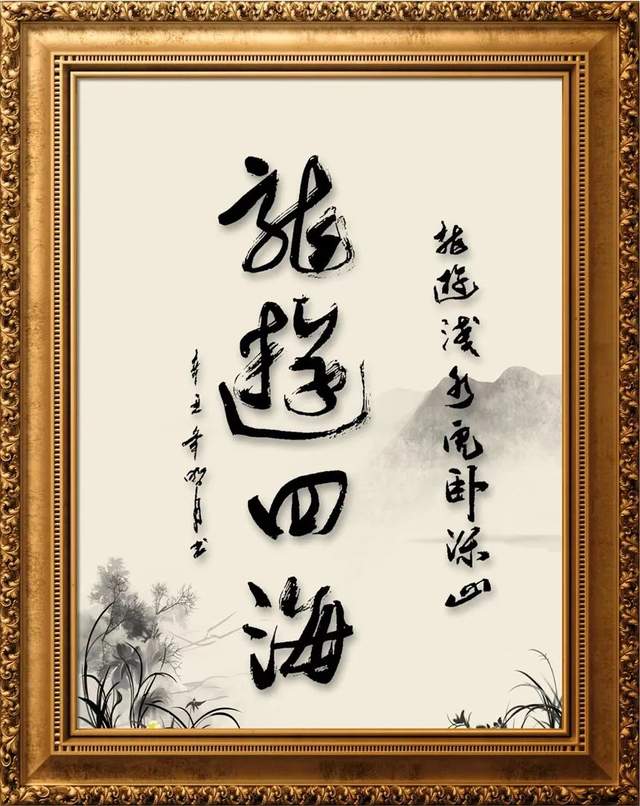 龍遊淺水虎卧深山
龍遊四海
辛丑年明月书